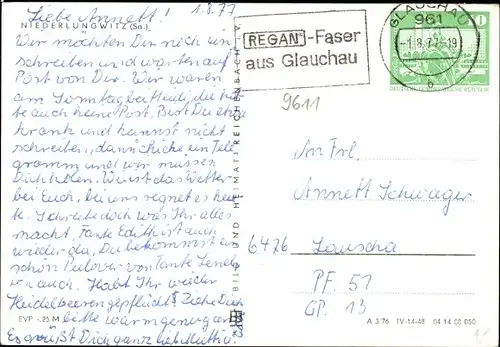 Liebe Annett! 1.8.77
NIEDERLUNGWITZ (Sa.)
Wir möchten Dir noch ein
schreiben und warten auf
Post von Dir. Wir waren
am Sonntag bei Heidi, die hat
te auch keine Post. Bist Du etwa
krank und kannst nicht
schreiben, dann schicke ein Tele
gramm und wir müssen
Dich holen. Wie ist das Wetter
bei Euch, bei uns regnet es heu
te. Schreibe doch was Ihr alles
macht. Tante Edith ist auch
wieder da, Du bekommst ein
schön Pulover von Tante
auch. Habt Ihr wieder
Heidelbeeren gepflückt? Ziehe Dich
bitte warm genug an.
Es grüßt Dich ganz lieb Mutti
EVP -.25 M
BILD UND HEIMAT REICHENBACH I. V.
REGAN-Faser
aus Glauchau
GLAUCHAU
961
-1.8.77-19
b
DEUTSCHE DEMOKRATISCHE REPUBLIK
9611
An Frl.
Annett Schwager
6426 Lauscha
PF. 51
GP. 13
A 3/76 IV-14-48 04 14 08 050